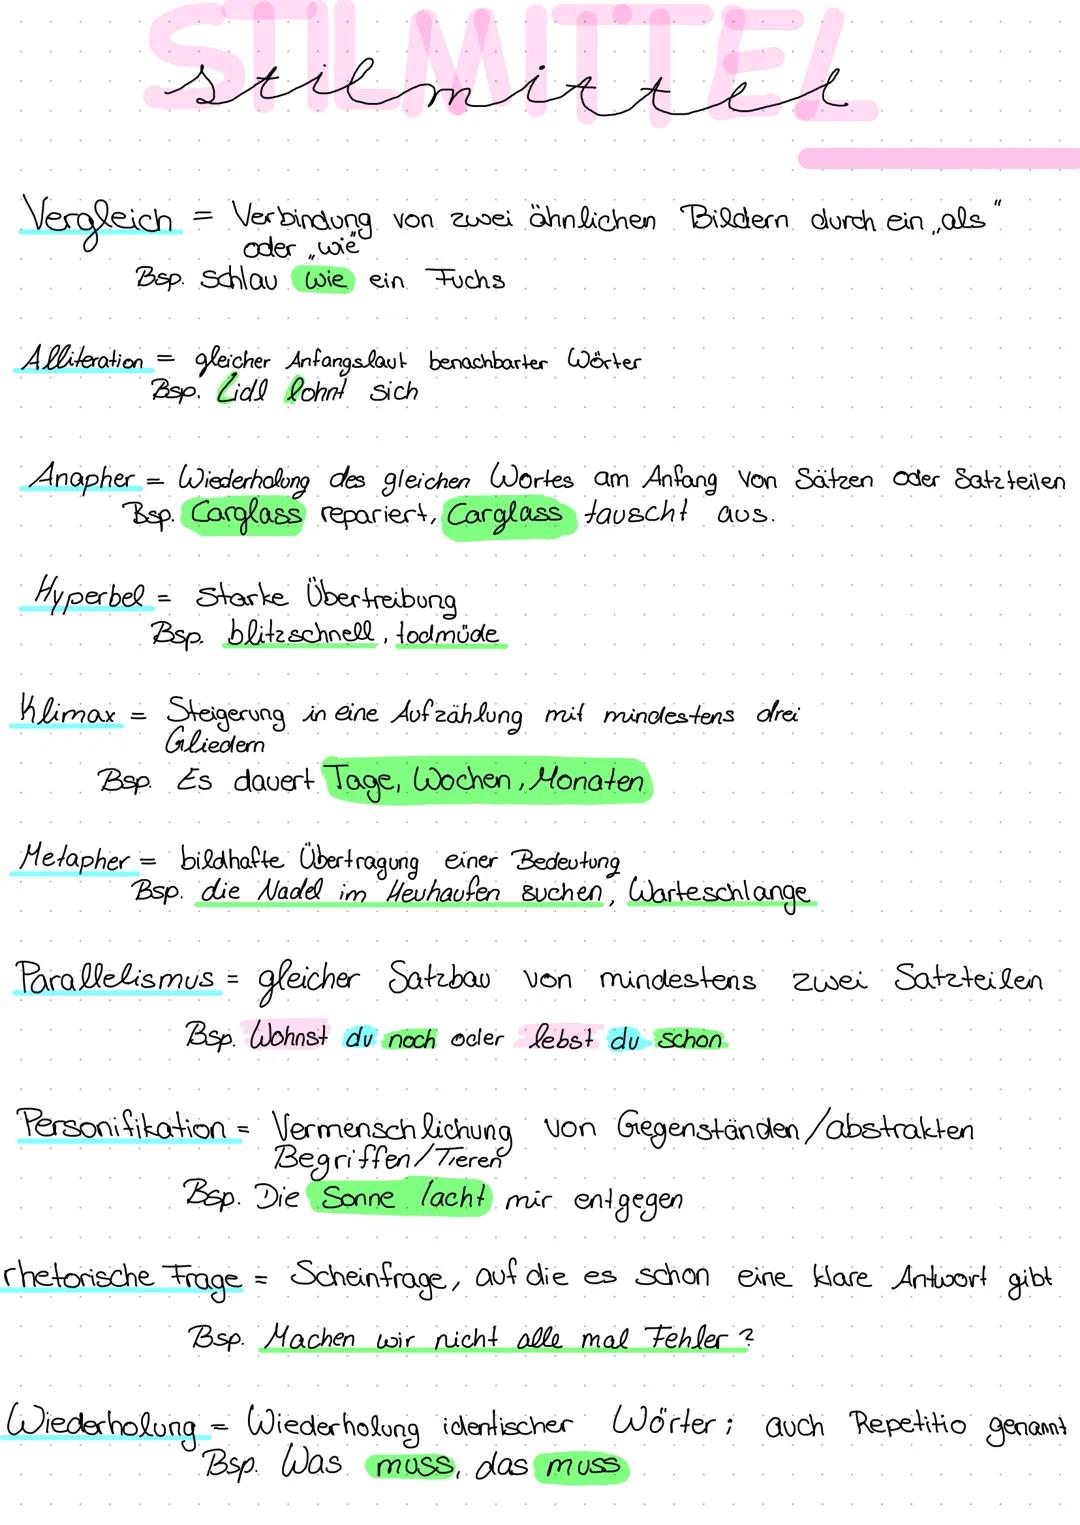 STILMITTEL
stilmittel
Vergleich = Verbindung von zwei ähnlichen Bildern durch ein „als"
oder „wie"
Bsp. schlau wie ein Fuchs
Alliteration = gleicher Anfangslaut benachbarter Wörter
Bsp. Lidl lohnt sich
Anapher = Wiederholung des gleichen Wortes am Anfang von Sätzen oder Satzteilen
Bsp. Carglass repariert, Carglass tauscht aus.
Hyperbel = starke Übertreibung
Bsp. blitzschnell, todmüde
Klimax = Steigerung in eine Aufzählung mit mindestens drei
Gliedern
Bsp. Es dauert Tage, Wochen, Monaten
Metapher = bildhafte Übertragung einer Bedeutung
Bsp. die Nadel im Heuhaufen suchen, Warteschlange
Parallelismus = gleicher Satzbau von mindestens zwei Satzteilen
Bsp. Wohnst du noch oder lebst du schon
Personifikation = Vermenschlichung von Gegenständen/abstrakten
Begriffen/Tieren
Bsp. Die Sonne lacht mir entgegen
rhetorische Frage = Scheinfrage, auf die es schon eine klare Antwort gibt
Bsp. Machen wir nicht alle mal Fehler?
Wiederholung = Wiederholung identischer Wörter; auch Repetitio genannt
Bsp. Was muss, das muss